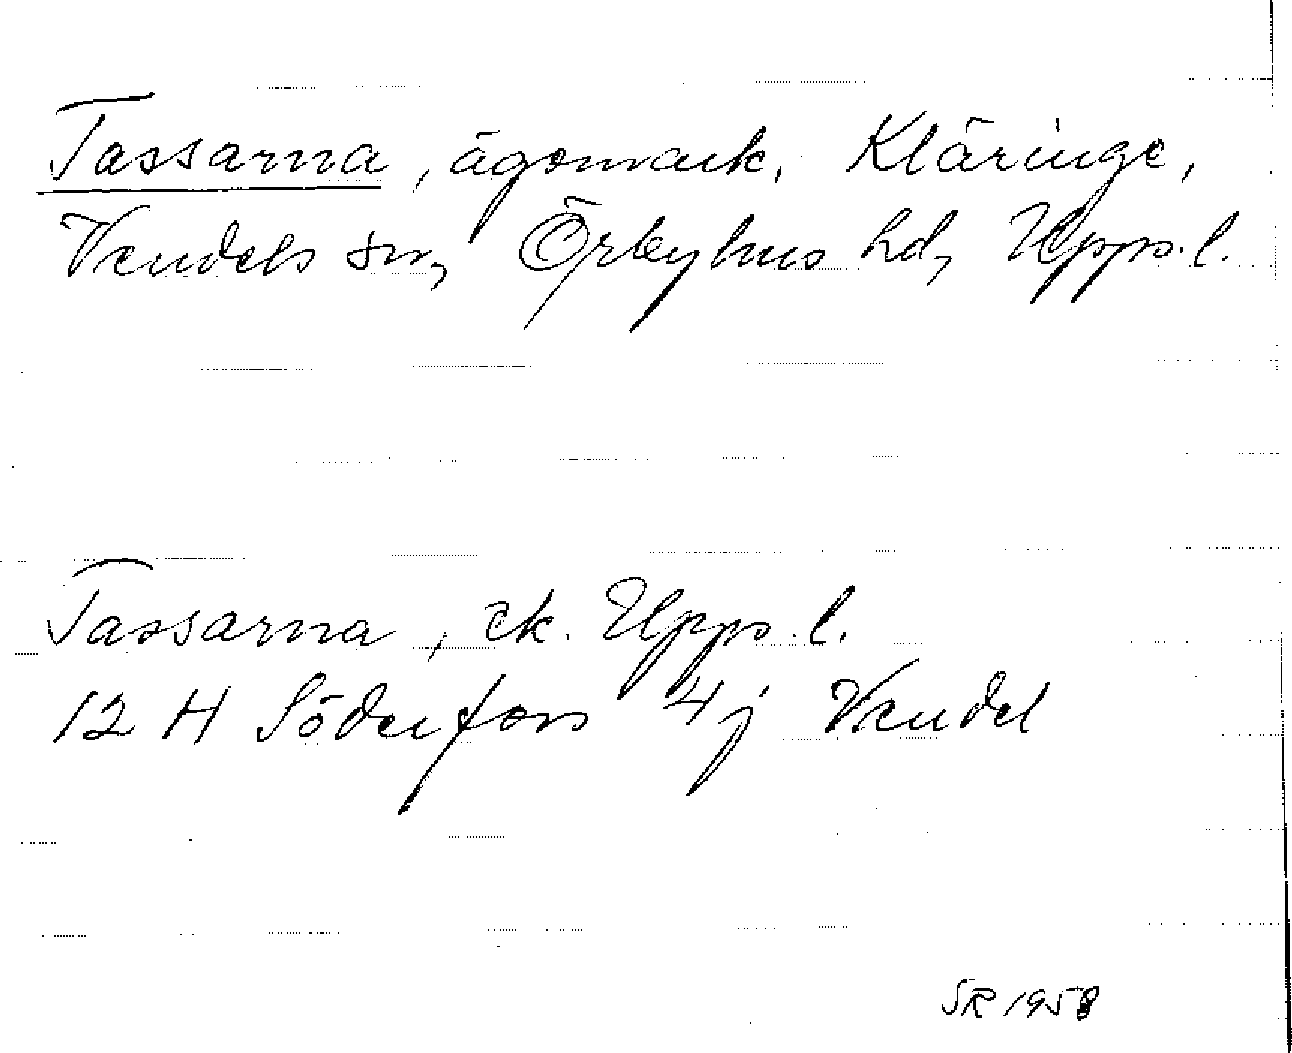 Tassarna, ägomark, Kläringe,
Vendels sn, Örbyhus hd, Upps. l.
Tassarna, ek. Upps. l.
12 H Söderfors 4j Vendel
SR 1958